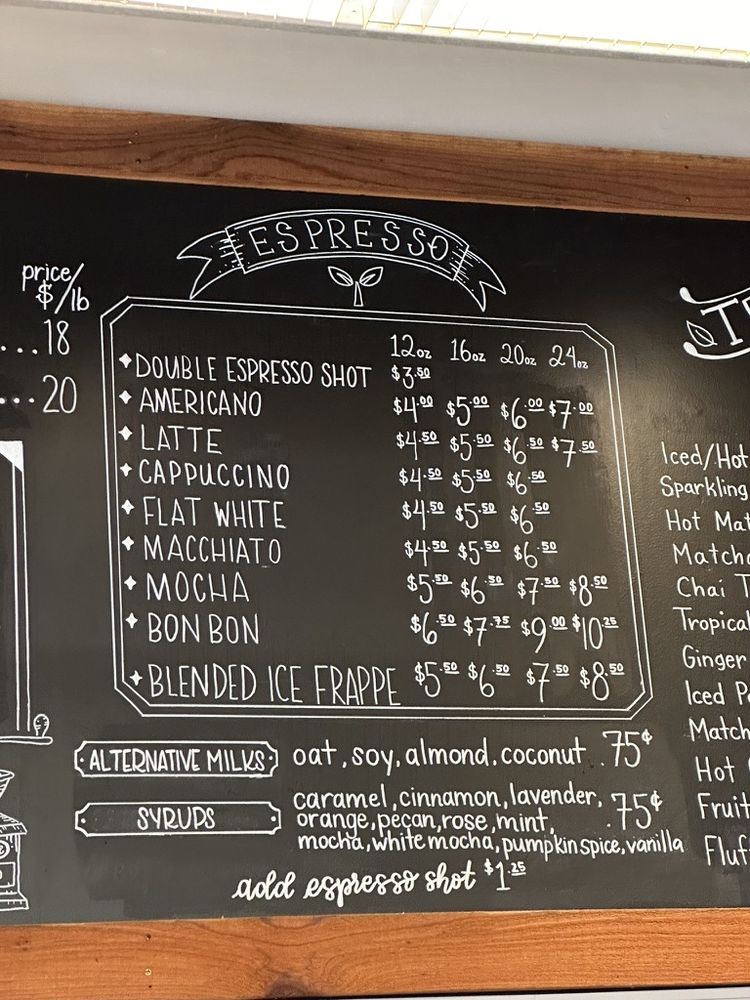 ESPRESSO
price/
$/lb
...18
...20
12oz 16oz 20oz 24oz
DOUBLE ESPRESSO SHOT $3.50
AMERICANO $4.00 $5.00 $6.00 $7.00
LATTE $4.50 $5.50 $6.50 $7.50
CAPPUCCINO $4.50 $5.50 $6.50
FLAT WHITE $4.50 $5.50 $6.50
MACCHIATO $4.50 $5.50 $6.50
MOCHA $5.50 $6.50 $7.50 $8.50
BON BON $6.50 $7.75 $9.00 $10.25
BLENDED ICE FRAPPE $5.50 $6.50 $7.50 $8.50
ALTERNATIVE MILKS oat, soy, almond, coconut .75¢
SYRUPS caramel, cinnamon, lavender, .75¢
orange, pecan, rose, mint,
mocha, white mocha, pumpkin spice, vanilla
add espresso shot $1.25
Iced/Hot
Sparkling
Hot Mat
Matcha
Chai T
Tropical
Ginger
Iced P
Match
Hot
Fruit
Fluf